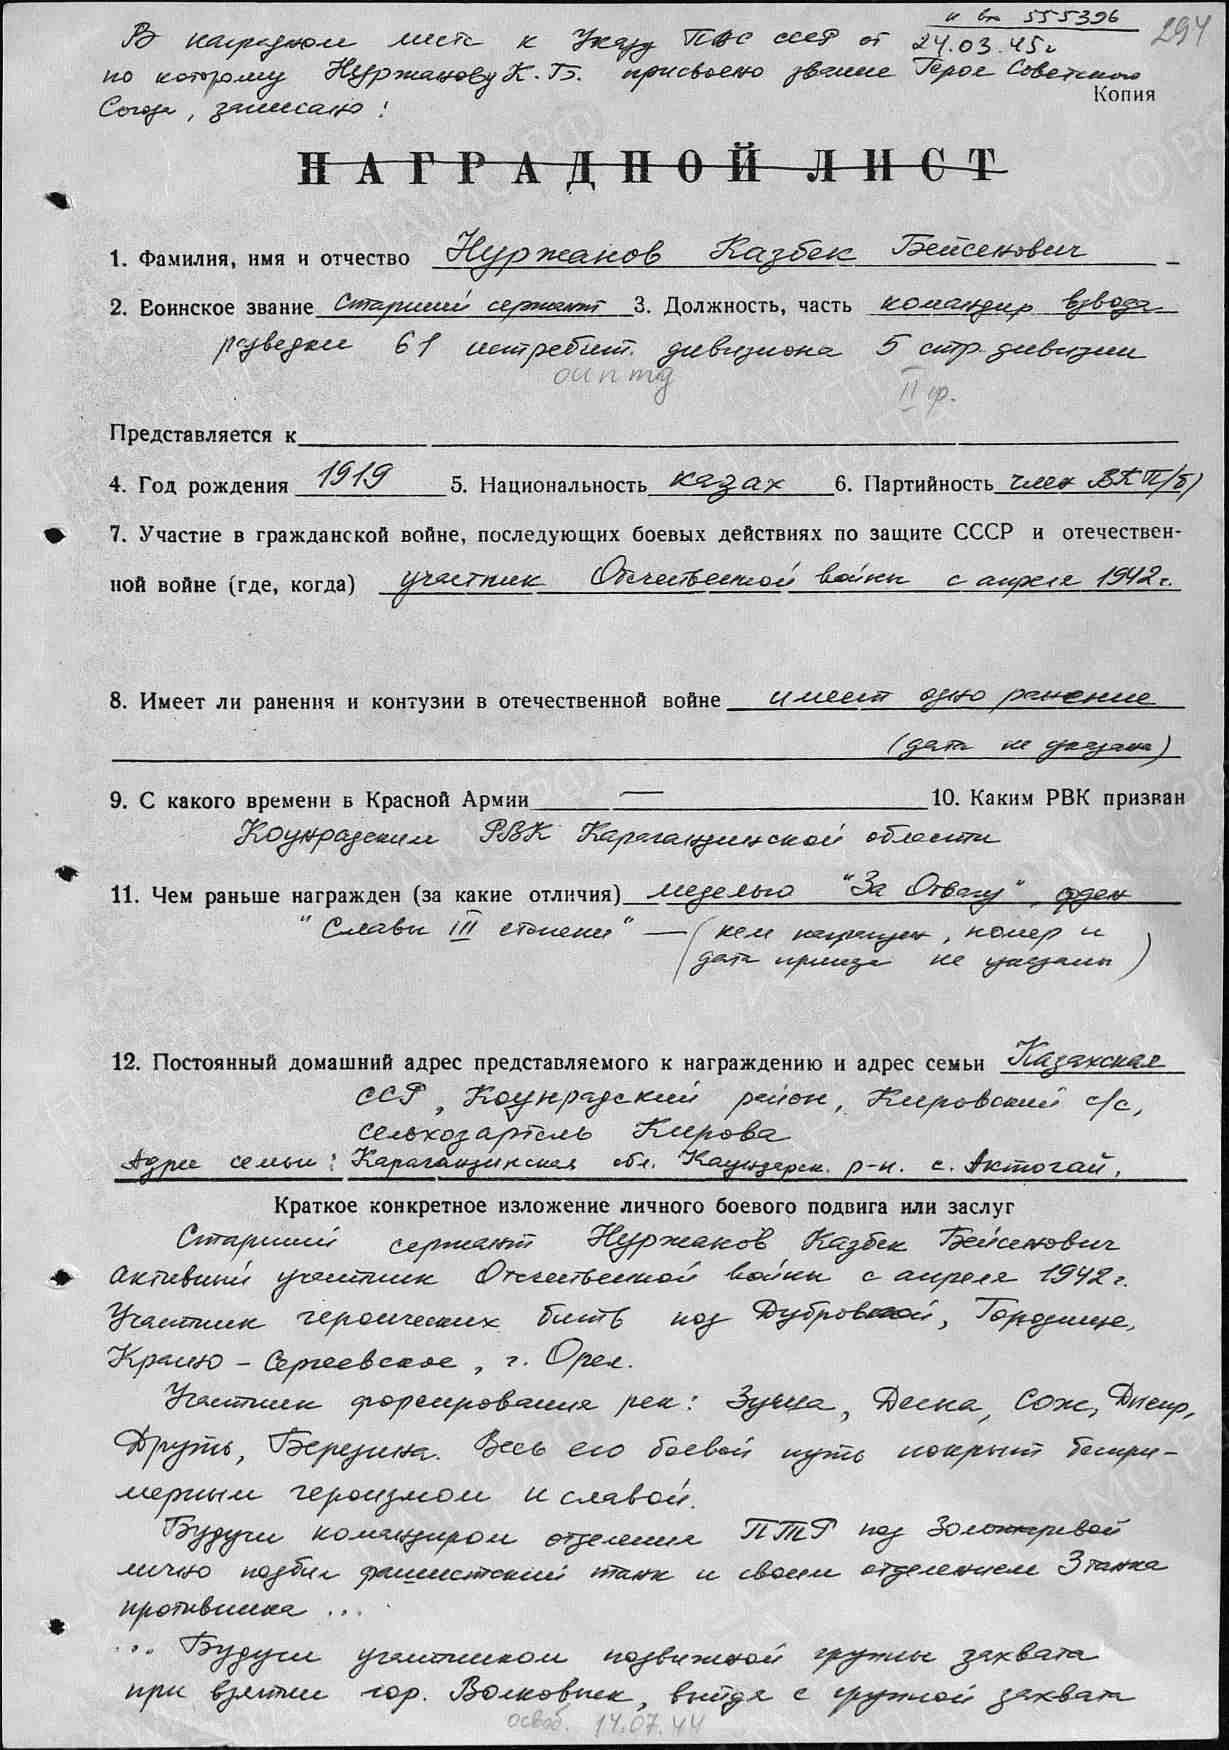 и вх 555396
294
В наградном листе к Указу ПВС СССР от 24.03.45г
по которому Нуржанову К.Б. присвоено звание Героя Советского
Копия
Союза, записано:
НАГРАДНОЙ ЛИСТ
1. Фамилия, имя и отчество Нуржанов Казбек Бейсенович
2. Воинское звание Старший сержант 3. Должность, часть командир взвода
разведки 61 истребит. дивизиона 5 стр. дивизии
оиптд
II ф.
Представляется к
4. Год рождения 1919 5. Национальность казах 6. Партийность член ВКП/б)
7. Участие в гражданской войне, последующих боевых действиях по защите СССР и отечествен-
ной войне (где, когда) участник Отечественной войны с апреля 1942г.
8. Имеет ли ранения и контузии в отечественной войне имеет одно ранение
(дата не указана)
9. С какого времени в Красной Армии — 10. Каким РВК призван
Коунрадским РВК Карагандинской области
11. Чем раньше награжден (за какие отличия) медалью "За Отвагу", орден
"Славы III степени" — (кем награжден, номер и
дата приказа не указаны)
12. Постоянный домашний адрес представляемого к награждению и адрес семьи Казахская
ССР, Коунрадский район, Кировский с/с,
сельхозартель Кирова
Адрес семьи: Карагандинская обл. р-н. с. Актогай.
Краткое конкретное изложение личного боевого подвига или заслуг
Старший сержант Нуржанов Казбек Бейсенович
активный участник Отечественной войны с апреля 1942г.
Участник героических битв под Дубровкой, Городище,
Красно-Сергеевское, г. Орел.
Участник форсирования рек: Зуша, Десна, Сож, Днепр,
Друть, Березина. Весь его боевой путь покрыт беспри-
мерным героизмом и славой.
Будучи командиром отделения ПТР под
лично подбил фашистский танк и своим отделением 3 танка
противника ...
... Будучи участником подвижной группы захвата
при взятии гор. Волковыск, выйдя с группой захвата
освоб. 14.07.44